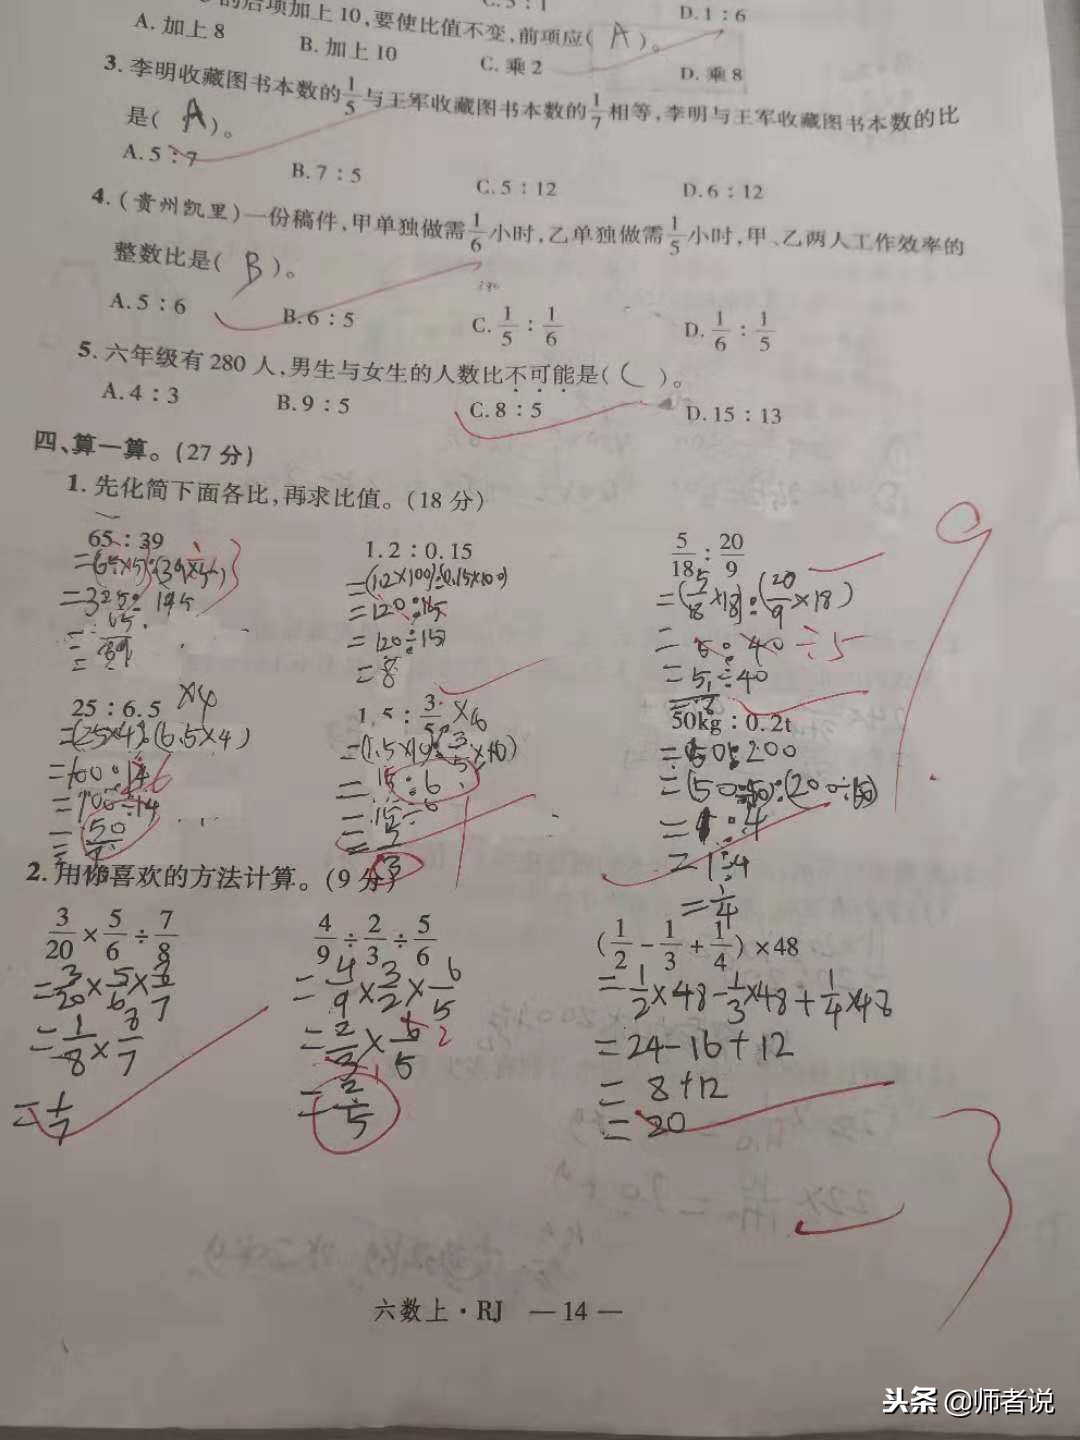 的后项加上10,要使比值不变,前项应( A )。
C.5:1 D.1:6
A.加上8 B.加上10 C.乘2 D.乘8
3.李明收藏图书本数的1/5与王军收藏图书本数的1/7相等,李明与王军收藏图书本数的比
是( A )。
A.5:7 B.7:5 C.5:12 D.6:12
4.(贵州凯里)一份稿件,甲单独做需1/6小时,乙单独做需1/5小时,甲、乙两人工作效率的
整数比是( B )。
A.5:6 B.6:5 C.1/5:1/6 D.1/6:1/5
5.六年级有280人,男生与女生的人数比不可能是( C )。
A.4:3 B.9:5 C.8:5 D.15:13
四、算一算。(27分)
1.先化简下面各比,再求比值。(18分)
65:39 1.2:0.15 5/18:20/9
=(65×5):(39×5) =(1.2×100):(0.15×100) =(5/18×18):(20/9×18)
=325:195 =120:15 =5:40 ÷5
=120÷15 =5÷40
=8
25:6.5 ×4 1.5:3/5 50kg:0.2t
=(25×4):(6.5×4) =(1.5×10):(3/5×10) =50:200
=100:14 =15:6 =(50÷50):(200÷50)
=100÷14 =15÷6 =1:4
=50/7 =1÷4
=1/4
2.用你喜欢的方法计算。(9分)
3/20×5/6÷7/8 4/9÷2/3÷5/6 (1/2-1/3+1/4)×48
=3/20×5/6×8/7 =4/9×3/2×6/5 =1/2×48-1/3×48+1/4×48
=1/8×8/7 =2/3×6/5 =24-16+12
=1/7 =2/5 =8+12
=20
9
3
六数上·RJ —14—
头条 @师者说